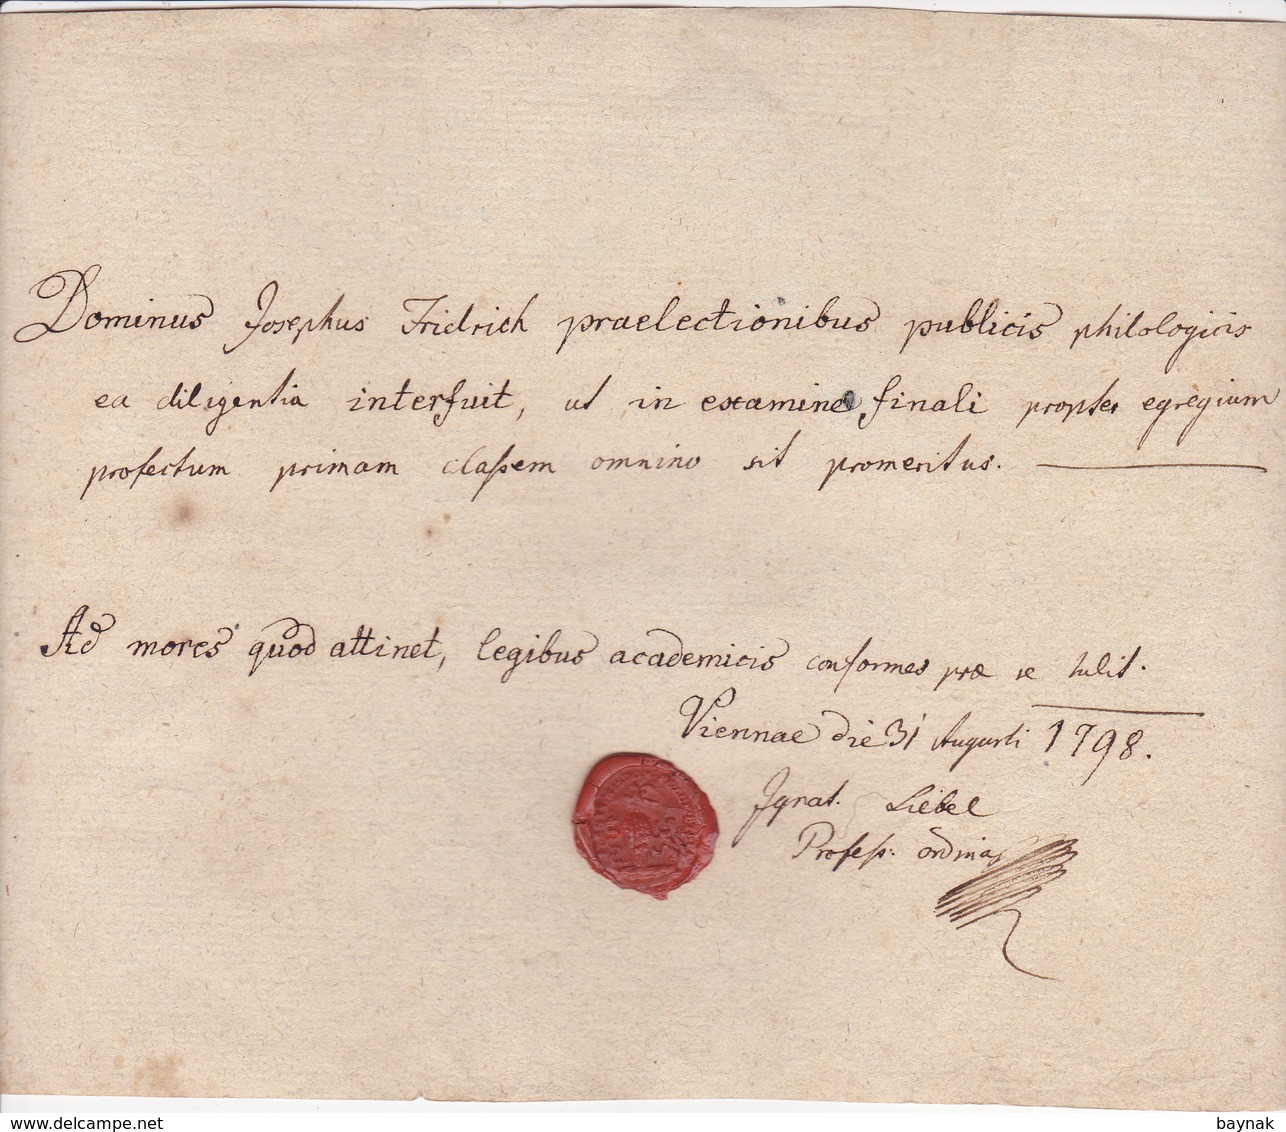 Dominus Josephus Fridrich praelectionibus publicis philologicis
ea diligentia interfuit, ut in examine finali propter egregium
profectum primam claſsem omnino sit promeritus.
Ad mores quod attinet, legibus academicis conformes prae se tulit.
Viennae die 31 Augusti 1798.
Ignat. Liebel
Profeſs: ordinar
www.delcampe.net
baynak